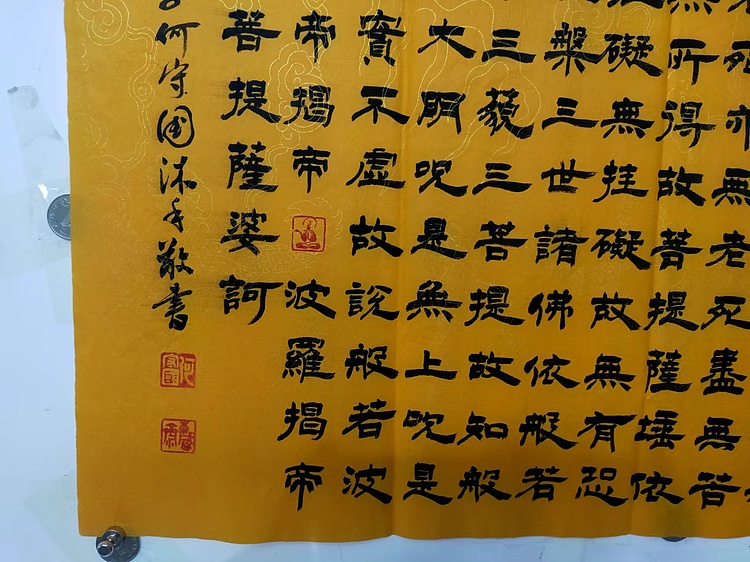 死亦無老死盡無苦
無所得故菩提薩埵依
礙無挂礙故無有恐
槃三世諸佛依般若
三藐三菩提故知般
大明呪是無上呪是
實不虛故說般若波
帝揭帝波羅揭帝
菩提薩婆訶
何守國沐手敬書